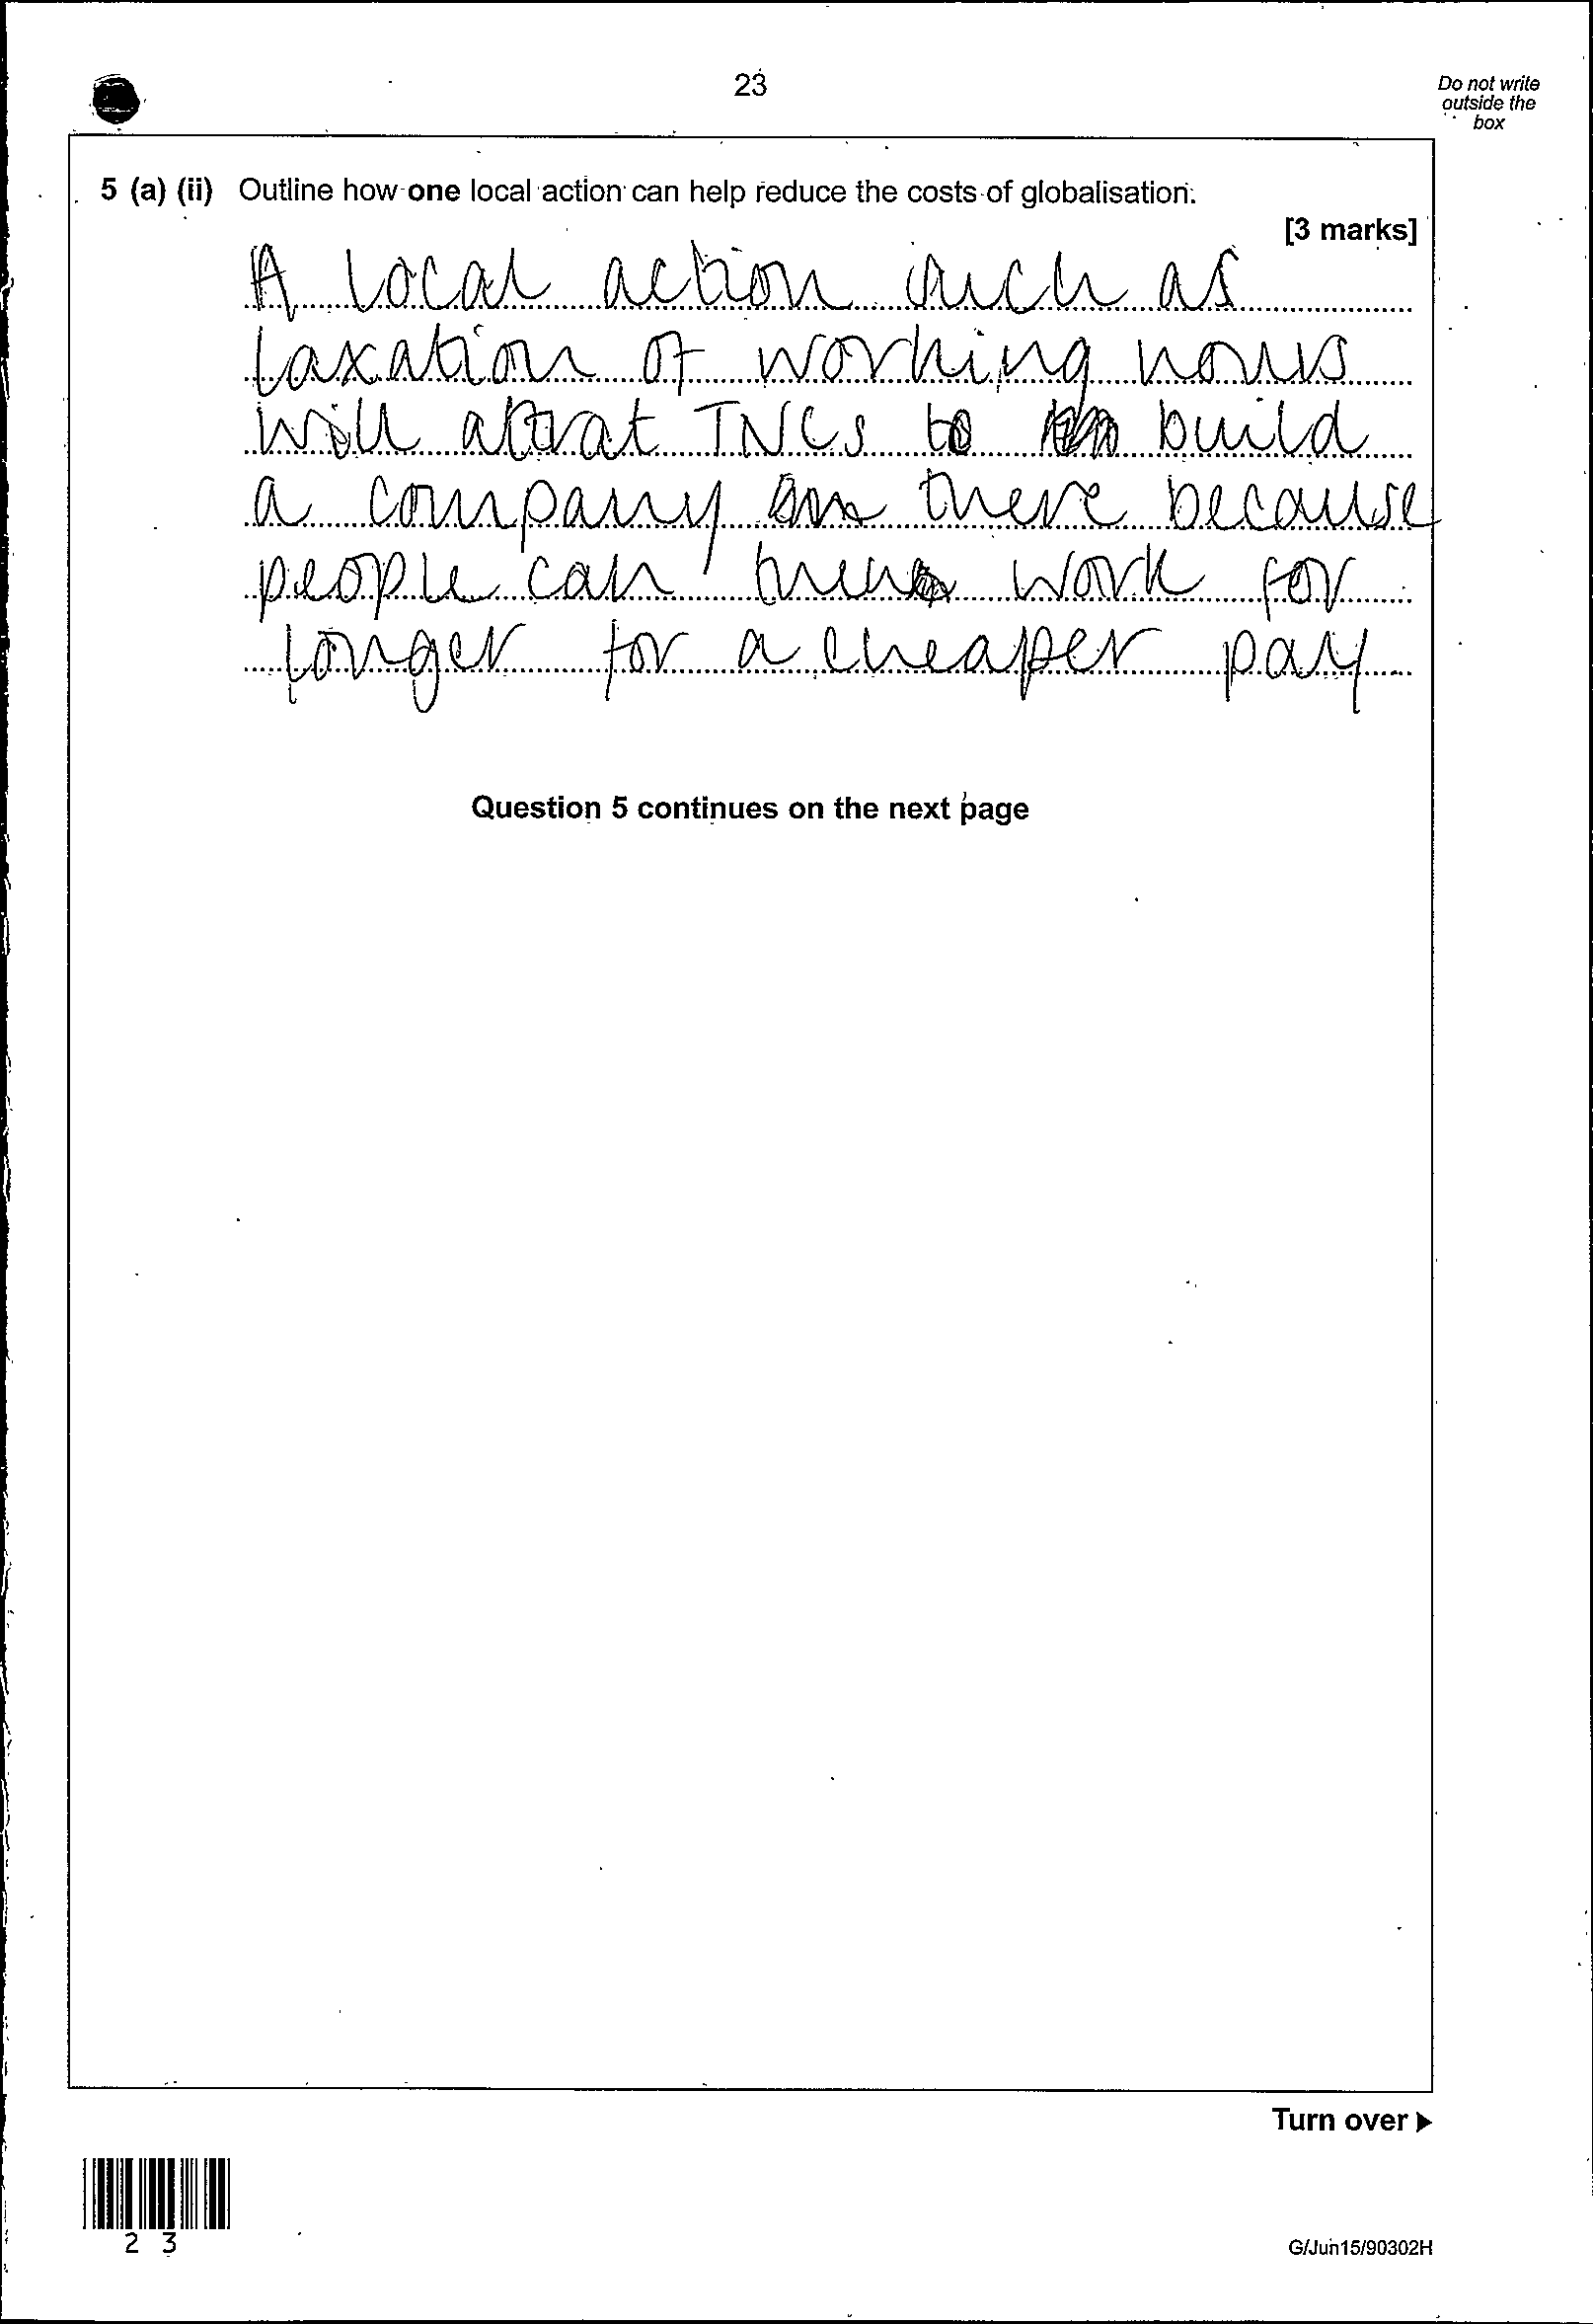 23
Do not write
outside the
box
5 (a) (ii) Outline how one local action can help reduce the costs of globalisation.
[3 marks]
A local action such as
laxation of working hours
will attrat TNCs to build
a company there because
people can then work for
longer for a cheaper pay
Question 5 continues on the next page
Turn over
2 3
G/Jun15/90302H